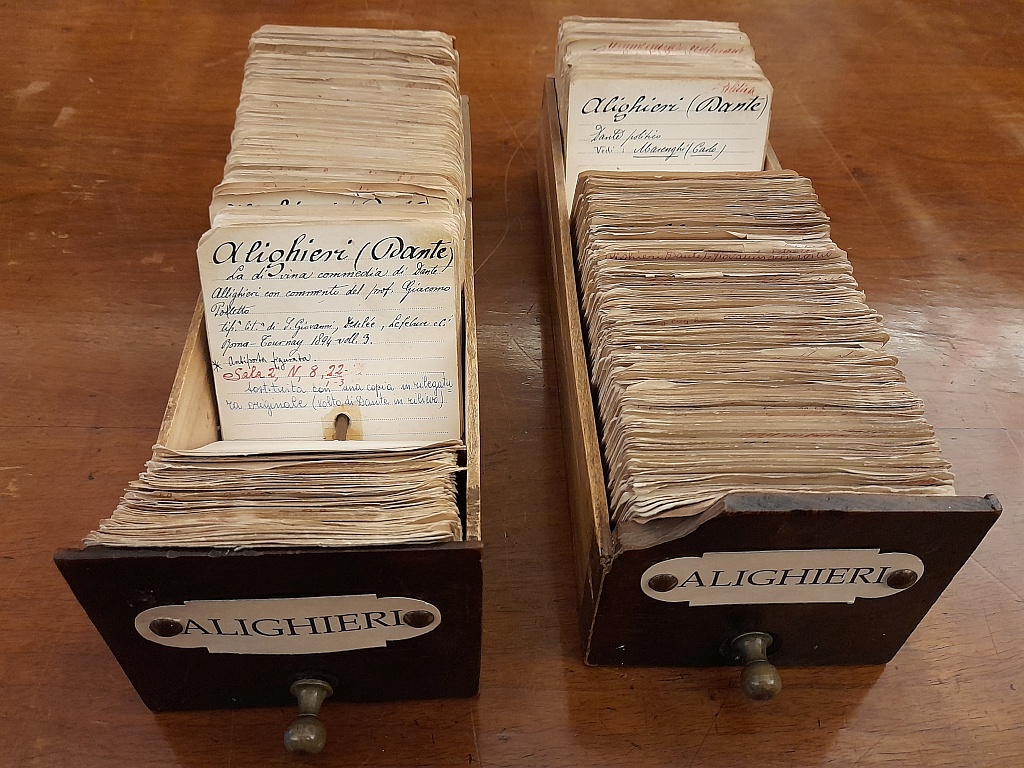 Alighieri (Dante)
La divina commedia di Dante
Allighieri con commenti del prof. Giacomo
Poletto
tip.ª lit.ª di S. Giovanni, Desclée, Lefebvre et Cⁱ
Roma-Tournay 1894 voll. 3.
* Antiporta figurata.
Sala 2, N, 8, 22-
Sostituita con una copia in rilegatu
ra originale (volto di Dante in rilievo)
ALIGHIERI
Politica
Alighieri (Dante)
Dante politico
Vedi: Marenghi (Carlo)
ALIGHIERI